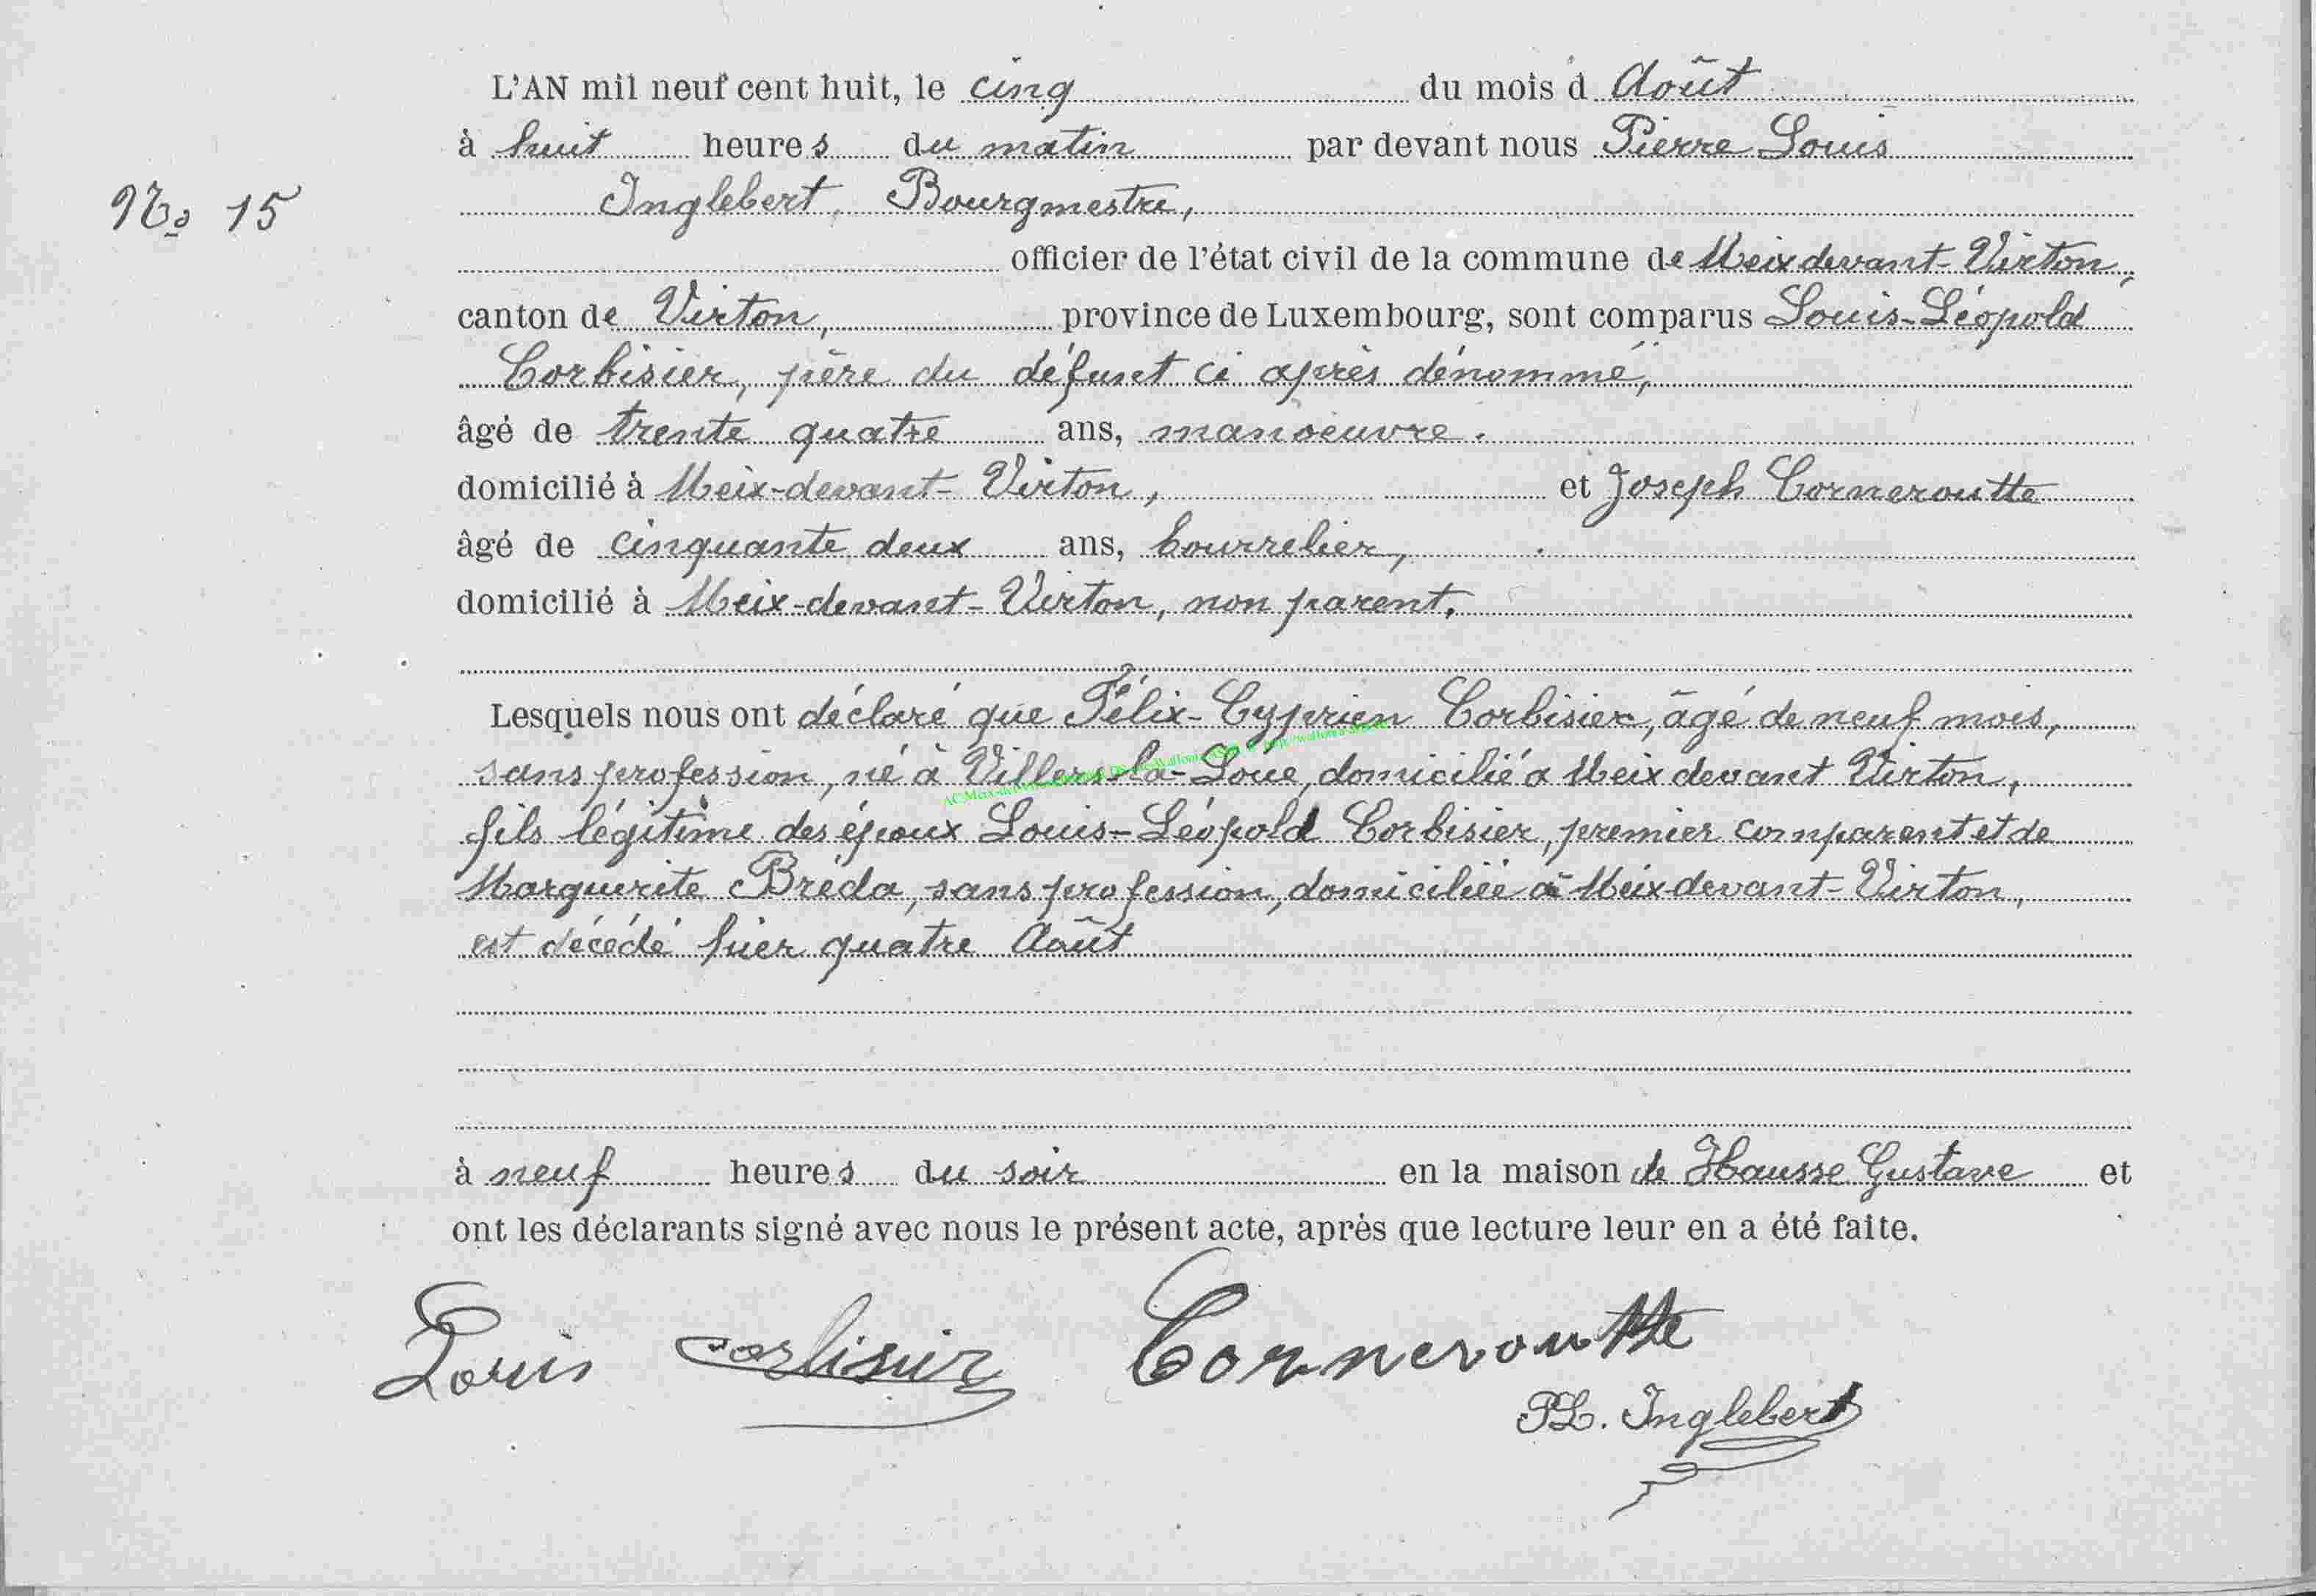 L'AN mil neuf cent huit, le cinq du mois d Août
à huit heures du matin par devant nous Pierre Louis
N° 15
Inglebert, Bourgmestre,
officier de l'état civil de la commune de Meix devant-Virton,
canton de Virton, province de Luxembourg, sont comparus Louis-Léopold
Corbisier, père du défunt ci après dénommé,
âgé de trente quatre ans, manoeuvre.
domicilié à Meix-devant-Virton, et Joseph Corneroutte
âgé de cinquante deux ans, bourrelier,
domicilié à Meix-devant-Virton, non parent.
Lesquels nous ont déclaré que Félix-Cyprien Corbisier, âgé de neuf mois,
sans profession, né à Villers-la-Loue, domicilié à Meix devant Virton,
fils légitime des époux Louis-Léopold Corbisier, premier comparent et de
Marguerite Bréda, sans profession, domiciliée à Meix-devant-Virton,
est décédé hier quatre Août
à neuf heures du soir en la maison de Hausse Gustave et
ont les déclarants signé avec nous le présent acte, après que lecture leur en a été faite.
Louis Corbisier Corneroutte
PL. Inglebert